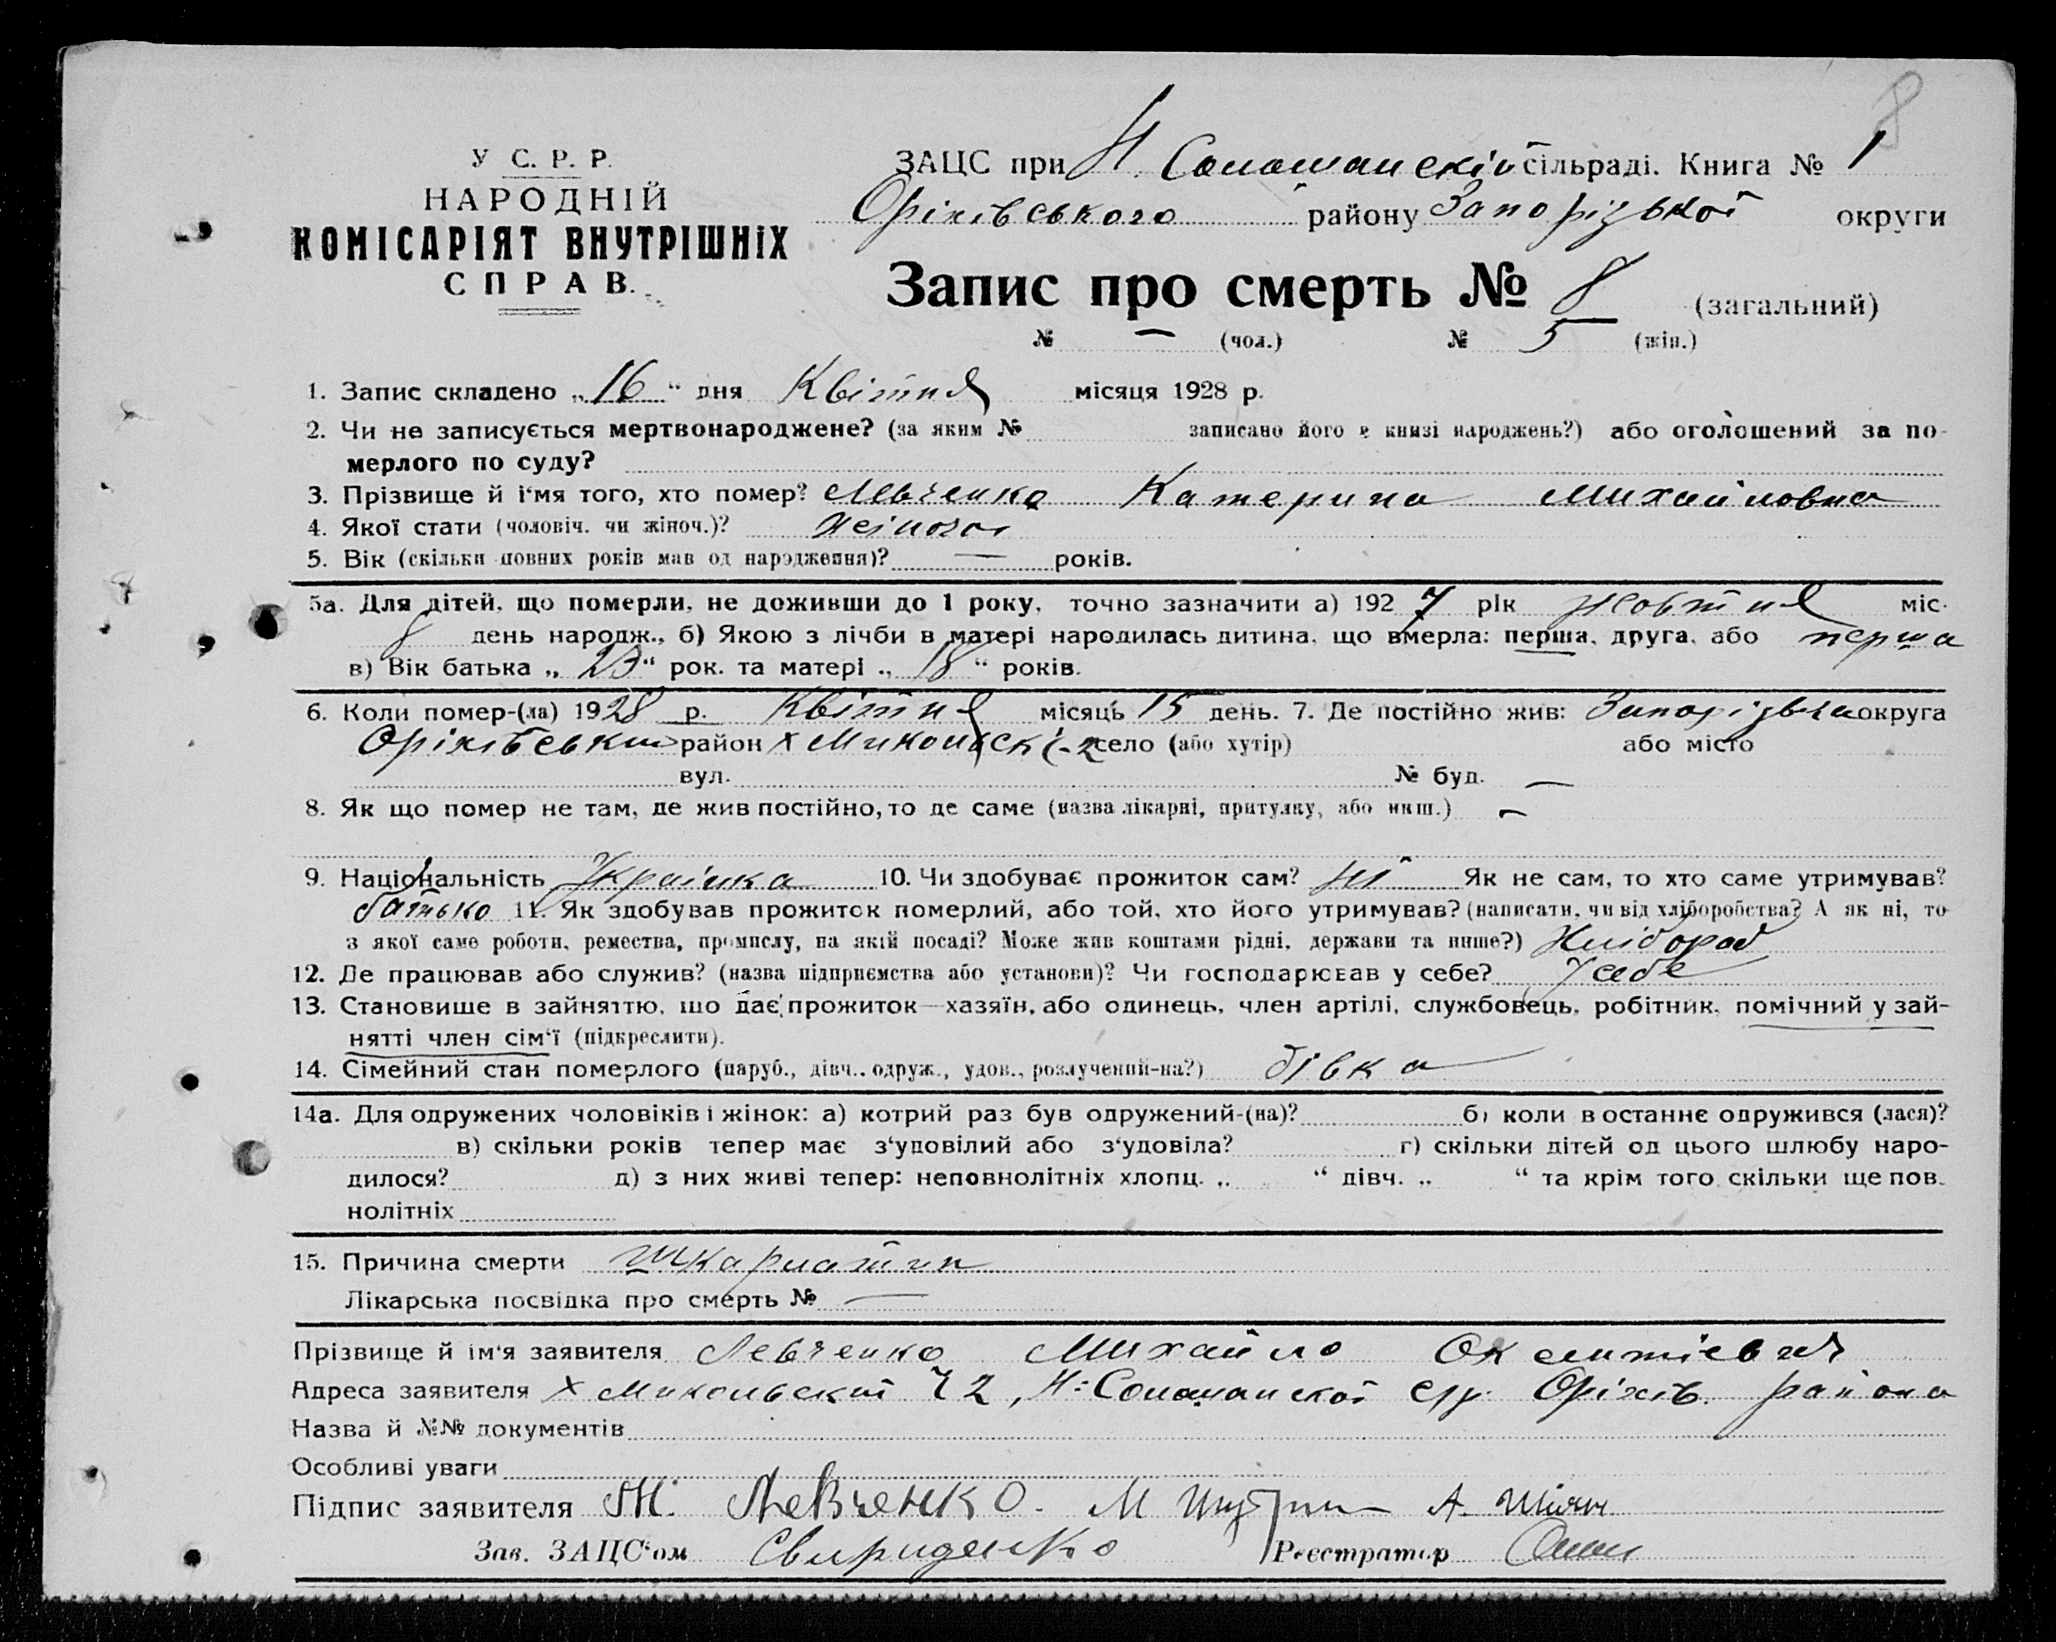 8
У С. Р. Р.
НАРОДНІЙ
КОМІСАРІЯТ ВНУТРІШНІХ
СПРАВ.
ЗАЦС при Н. Соломанскій сільраді. Книга № 1
Оріхівського району Запорізької округи
Запис про смерть № 8 (загальний)
№ — (чол.) № 5 (жін.)
1. Запис складено „16“ дня Квітня місяця 1928 р.
2. Чи не записується мертвонароджене? (за яким № записано його в книзі народжень?) або оголошений за по-
мерлого по суду?
3. Прізвище й і‘мя того, хто помер? Левченко Катерина Михайловна
4. Якої стати (чоловіч. чи жіноч.)? жіночої
5. Вік (скільки повних років мав од народження)? — років.
5а. Для дітей, що померли, не доживши до 1 року, точно зазначити а) 1927 рік Жовтня міс.
8 день народж., б) Якою з лічби в матері народилась дитина, що вмерла: перша, друга, або перша
в) Вік батька „23“ рок. та матері „18“ років.
6. Коли помер-(ла) 1928 р. Квітня місяць 15 день. 7. Де постійно жив: Запорізька округа
Оріхівський район х Микольскі-2 село (або хутір) або місто
вул. № буд. —
8. Як що помер не там, де жив постійно, то де саме (назва лікарні, притулку, або инш.) —
9. Національність Українка 10. Чи здобуває прожиток сам? ні Як не сам, то хто саме утримував?
батько 11. Як здобував прожиток померлий, або той, хто його утримував? (написати, чи від хліборобства? А як ні, то
з якої саме роботи, ремества, промислу, на якій посаді? Може жив коштами рідні, держави та инше?) Хлібороб
12. Де працював або служив? (назва підприємства або установи)? Чи господарював у себе? У себе
13. Становище в зайняттю, що дає прожиток—хазяїн, або одинець, член артілі, службовець, робітник, помічний у зай-
нятті член сім‘ї (підкреслити).
14. Сімейний стан померлого (паруб., дівч., одруж., удов., розлучений-на?) дівка
14а. Для одружених чоловіків і жінок: а) котрий раз був одружений-(на)? б) коли в останнє одружився (лася)?
в) скільки років тепер має з‘удовілий або з‘удовіла? г) скільки дітей од цього шлюбу наро-
дилося? д) з них живі тепер: неповнолітніх хлопц. „ “ дівч. „ “ та крім того скільки ще пов-
нолітніх
15. Причина смерти шкарлатин
Лікарська посвідка про смерть № —
Прізвище й ім‘я заявителя Левченко Михайло
Адреса заявителя х Микольский 2, Н-Соломанской с/р. Оріхів. района
Назва й №№ документів
Особливі уваги
Підпис заявителя М. Левченко. М А.
Зав. ЗАЦС‘ом Свириденко Реєстратор